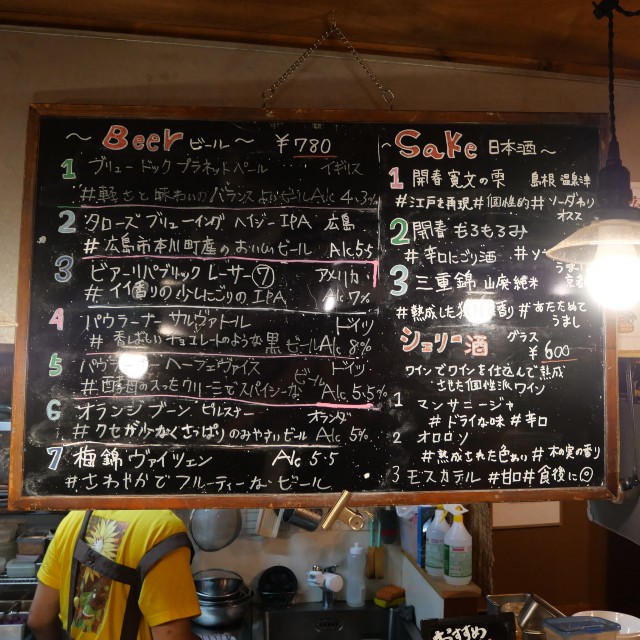 ~ Beer ビール~ ¥780
1 ブリュードックプラネットペール イギリス
#軽さと味わいのバランス ビール Alc 4.3%
2 タローズブリューイング ヘイジーIPA 広島
#広島市本川町産のおいしいビール Alc 5.5
3 ビアーリパブリックレーサー⑦ アメリカ
#イイ香りの少しにごりのIPA Alc 7%
4 パウラーナーサルヴァトール ドイツ
#香ばしいチョコレートのような黒ビール Alc 8%
5 パウラーナーヘーフェヴァイス ドイツ
#酵母のスッとクリーミーでスパイシーなビール Alc 5.5%
6 オランジブーン ピルスナー オランダ
#クセが少なくさっぱりのみやすいビール Alc 5%
7 梅錦ヴァイツェン Alc 5.5
#さわやかでフルーティーなビール
~Sake 日本酒~
1 開春 寛文の雫 島根 温泉津
#江戸を再現 #個性的 #ソーダわりオススメ
2 開春 もろもろみ
#辛口にごり酒
3 三重錦 山廃純米
#熟成した #あたためてうまし
シェリー酒 グラス ¥600
ワインでワインを仕込んで熟成
させた個性派ワイン
1 マンサニージャ
#ドライな味 #辛口
2 オロロソ
#熟成された色あい #木の実の香り
3 モスカテル #甘口 #食後に
おすすめ